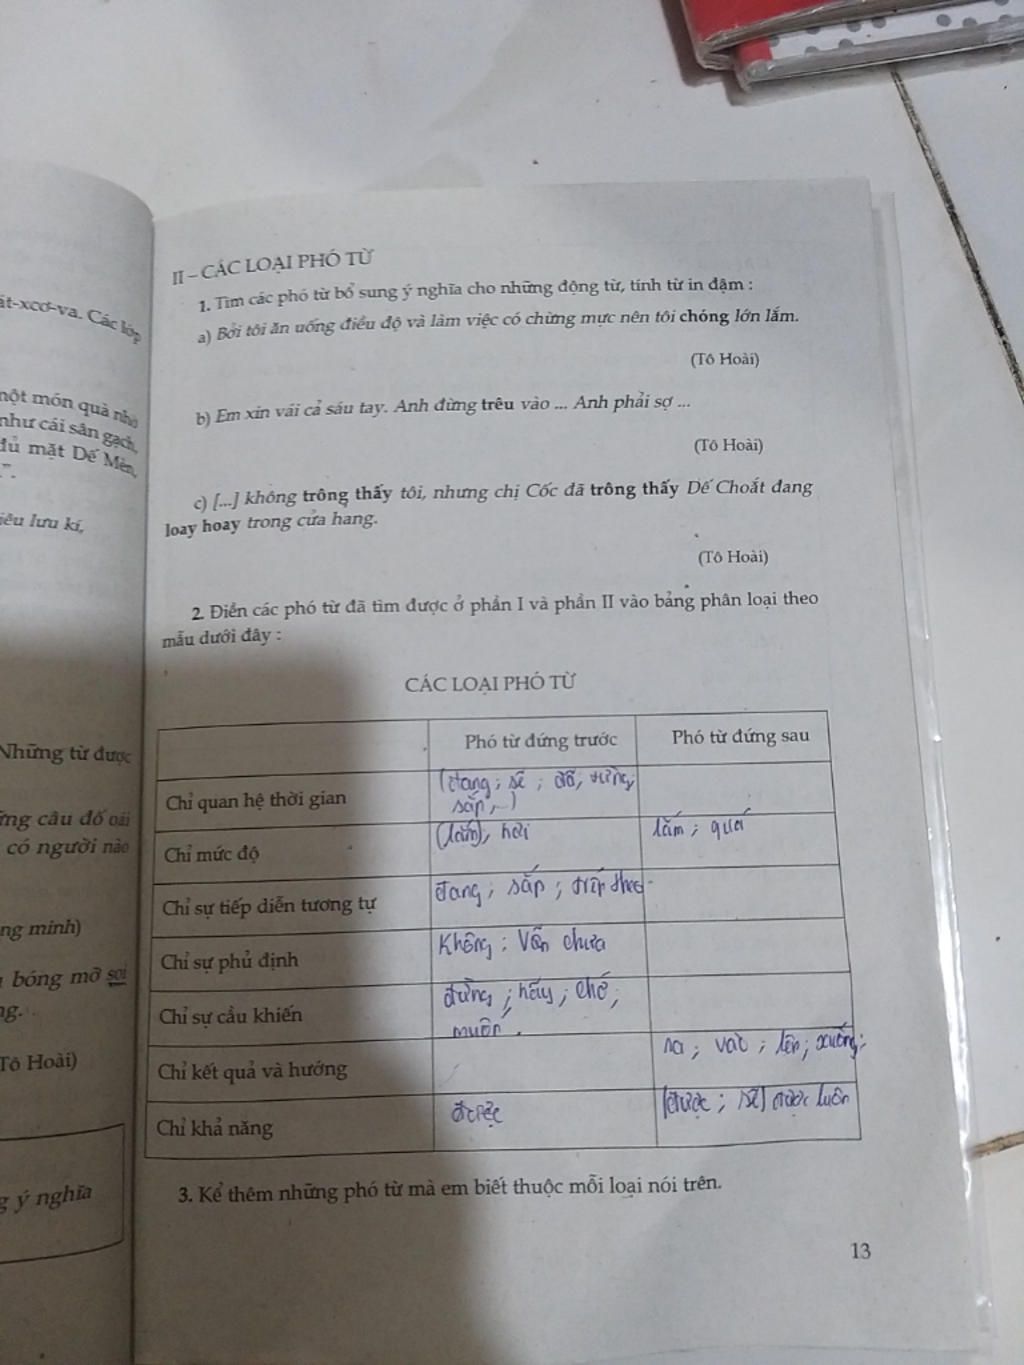 át-xcơ-va. Các lớp
một món quà nhỏ
như cái sân gạch,
đủ mặt Dế Mèn,
".
iêu lưu kí,
Những từ được
ững câu đố oái
có người nào
ng minh)
bóng mỡ soi
ng.
Tô Hoài)
g ý nghĩa
II – CÁC LOẠI PHÓ TỪ
1. Tìm các phó từ bổ sung ý nghĩa cho những động từ, tính từ in đậm :
a) Bởi tôi ăn uống điều độ và làm việc có chừng mực nên tôi chóng lớn lắm.
(Tô Hoài)
b) Em xin vái cả sáu tay. Anh đừng trêu vào ... Anh phải sợ ...
(Tô Hoài)
c) [...] không trông thấy tôi, nhưng chị Cốc đã trông thấy Dế Choắt đang
loay hoay trong cửa hang.
(Tô Hoài)
2. Điền các phó từ đã tìm được ở phần I và phần II vào bảng phân loại theo
mẫu dưới đây :
CÁC LOẠI PHÓ TỪ
Phó từ đứng trước Phó từ đứng sau
Chỉ quan hệ thời gian (đang ; sẽ ; đã, từng,
sắp,...)
Chỉ mức độ (lắm), hơi lắm ; quá
Chỉ sự tiếp diễn tương tự đang ; sắp ; tiếp theo
Chỉ sự phủ định Không ; Vẫn chưa
Chỉ sự cầu khiến đừng ; hãy ; chớ ;
muốn.
Chỉ kết quả và hướng ra ; vào ; lên ; xuống ;
Chỉ khả năng được [được ; sẽ] được luôn
3. Kể thêm những phó từ mà em biết thuộc mỗi loại nói trên.
13